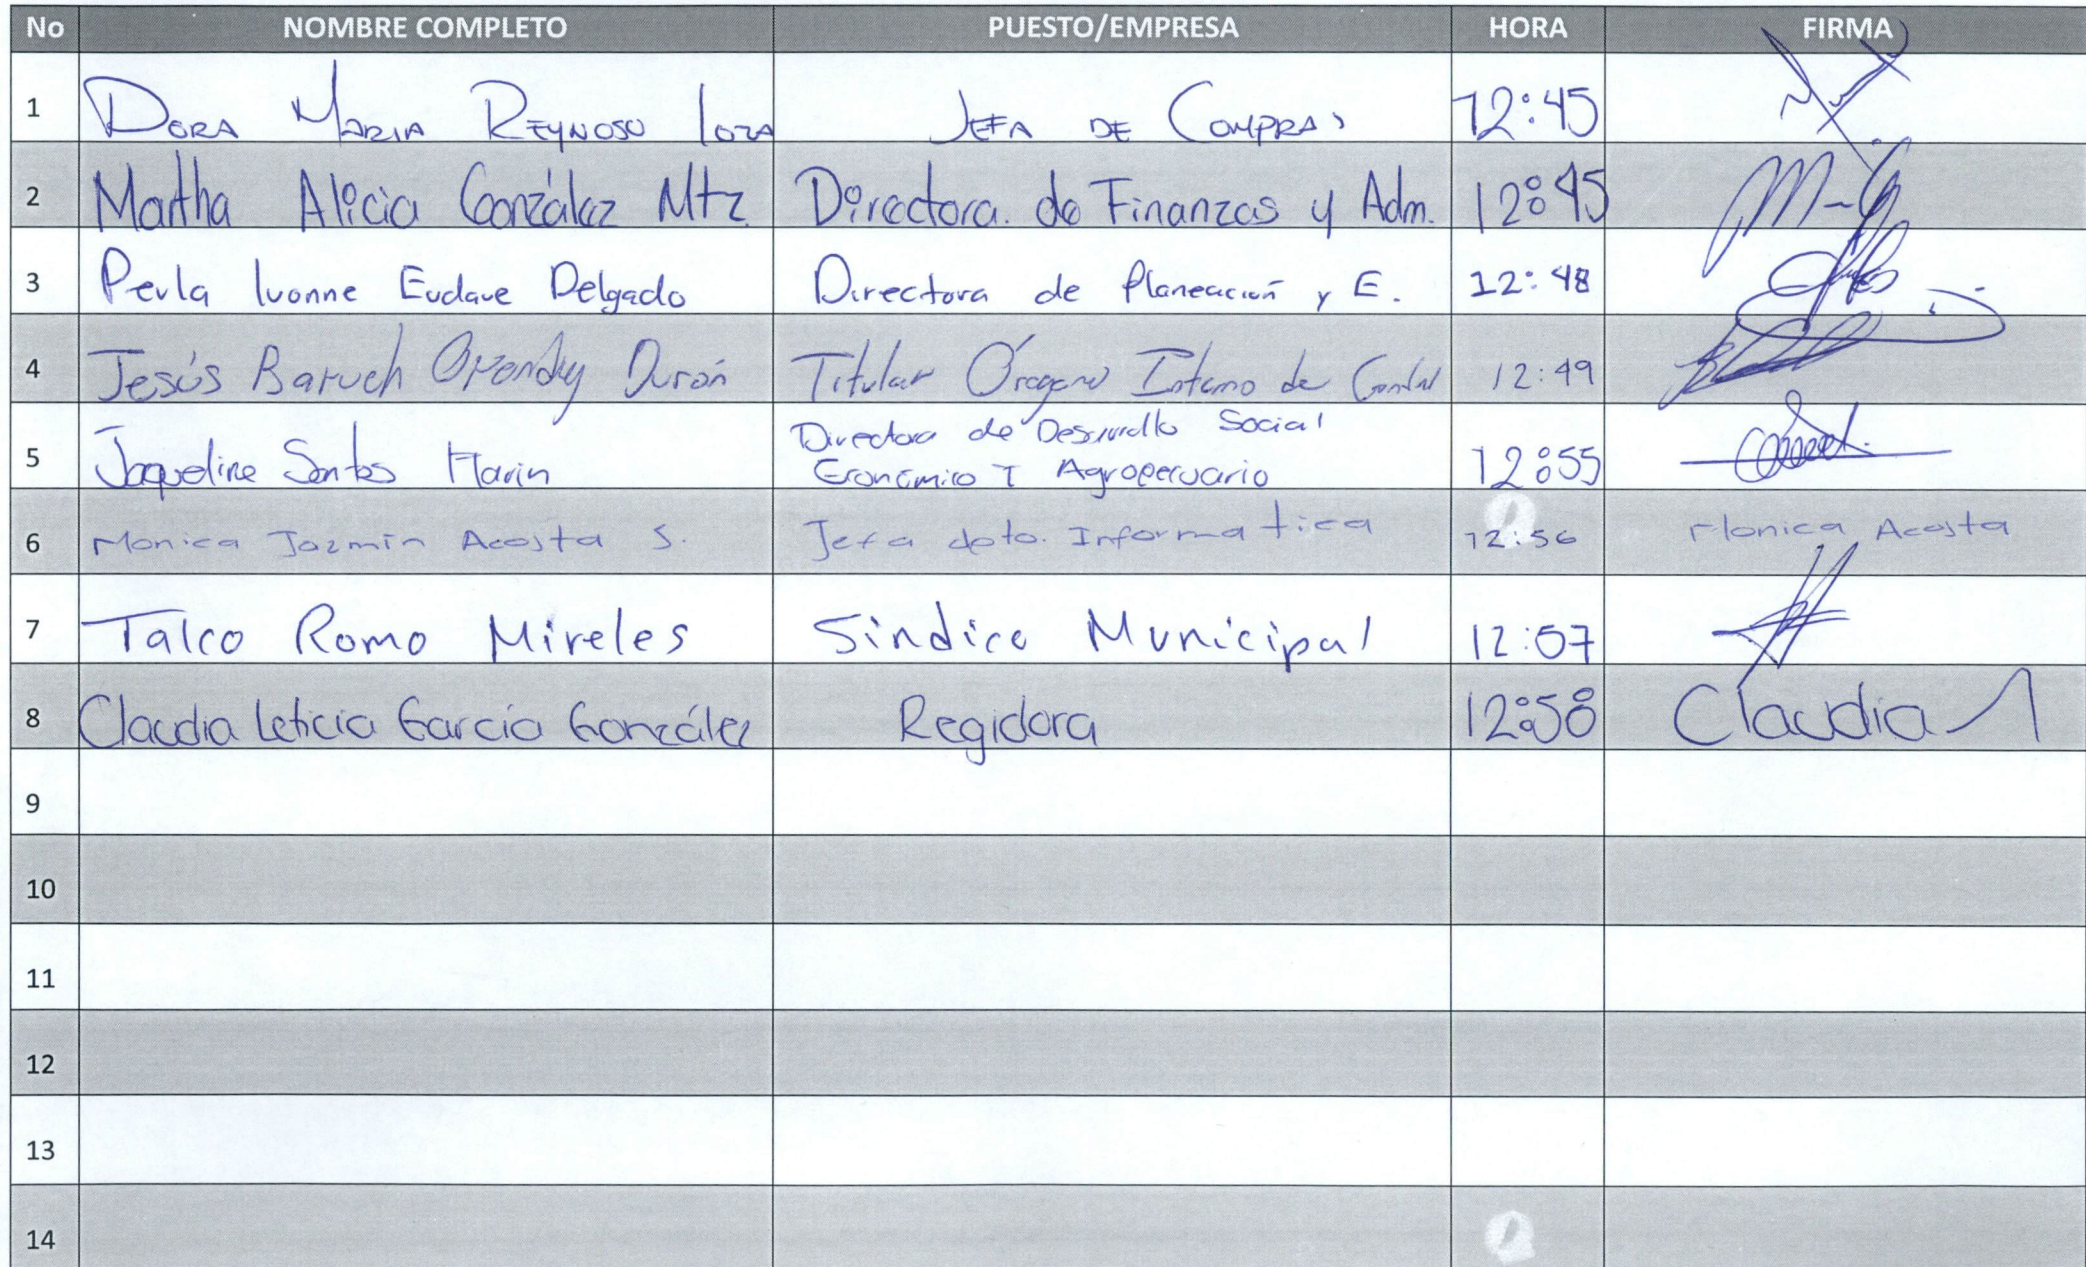 No NOMBRE COMPLETO PUESTO/EMPRESA HORA FIRMA
1 DORA MARIA REYNOSO LOZA JEFA DE COMPRAS 12:45
2 Martha Alicia González Mtz Directora. de Finanzas y Adm. 12:45
3 Perla Ivonne Eudave Delgado Directora de Planeación y E. 12:48
4 Jesús Baruch Durón Titular Interno de 12:49
Directora de Desarrollo Social
5 Jaqueline Santos Marin Económico Y Agropecuario 12:55
6 Monica Jazmín Acosta S. Jefa dpto. Informatica 12:56 Monica Acosta
7 Talco Romo Mireles Sindico Municipal 12:57
8 Claudia Leticia García González Regidora 12:58 Claudia
9
10
11
12
13
14